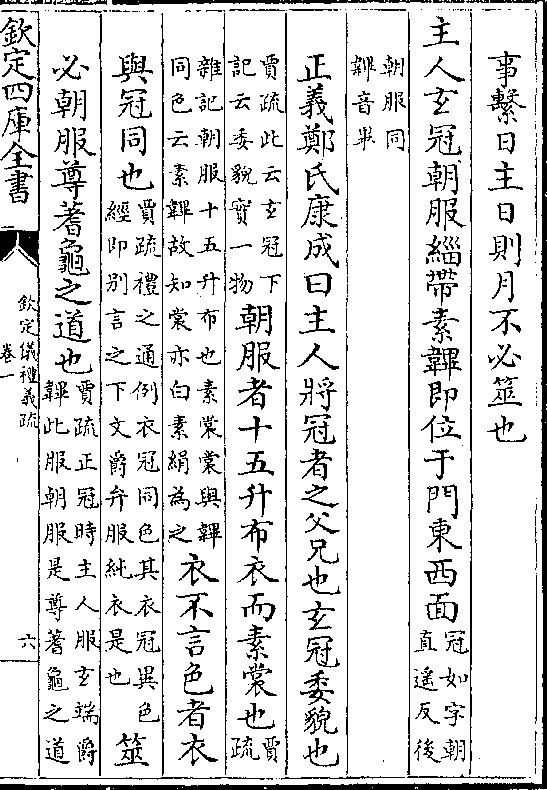 事繫日主日則月不必筮也
主人玄冠朝服緇帶素韠即位于門東西面冠如字朝直遥反後
朝服同韠音畢
正義鄭氏康成曰主人將冠者之父兄也玄冠委貌也
賈疏此云玄冠下記云委貌實一物朝服者十五升布衣而素裳也賈疏
雜記朝服十五升布也素裳裳與韠同色云素韠故知裳亦白素絹為之衣不言色者衣
與冠同也賈疏禮之通例衣冠同色其衣冠異色經即別言之下文爵弁服純衣是也筮
必朝服尊蓍龜之道也賈疏正冠時主人服玄端爵韠此服朝服是尊蓍龜之道
欽定四庫全書
欽定儀禮義疏
卷一
六